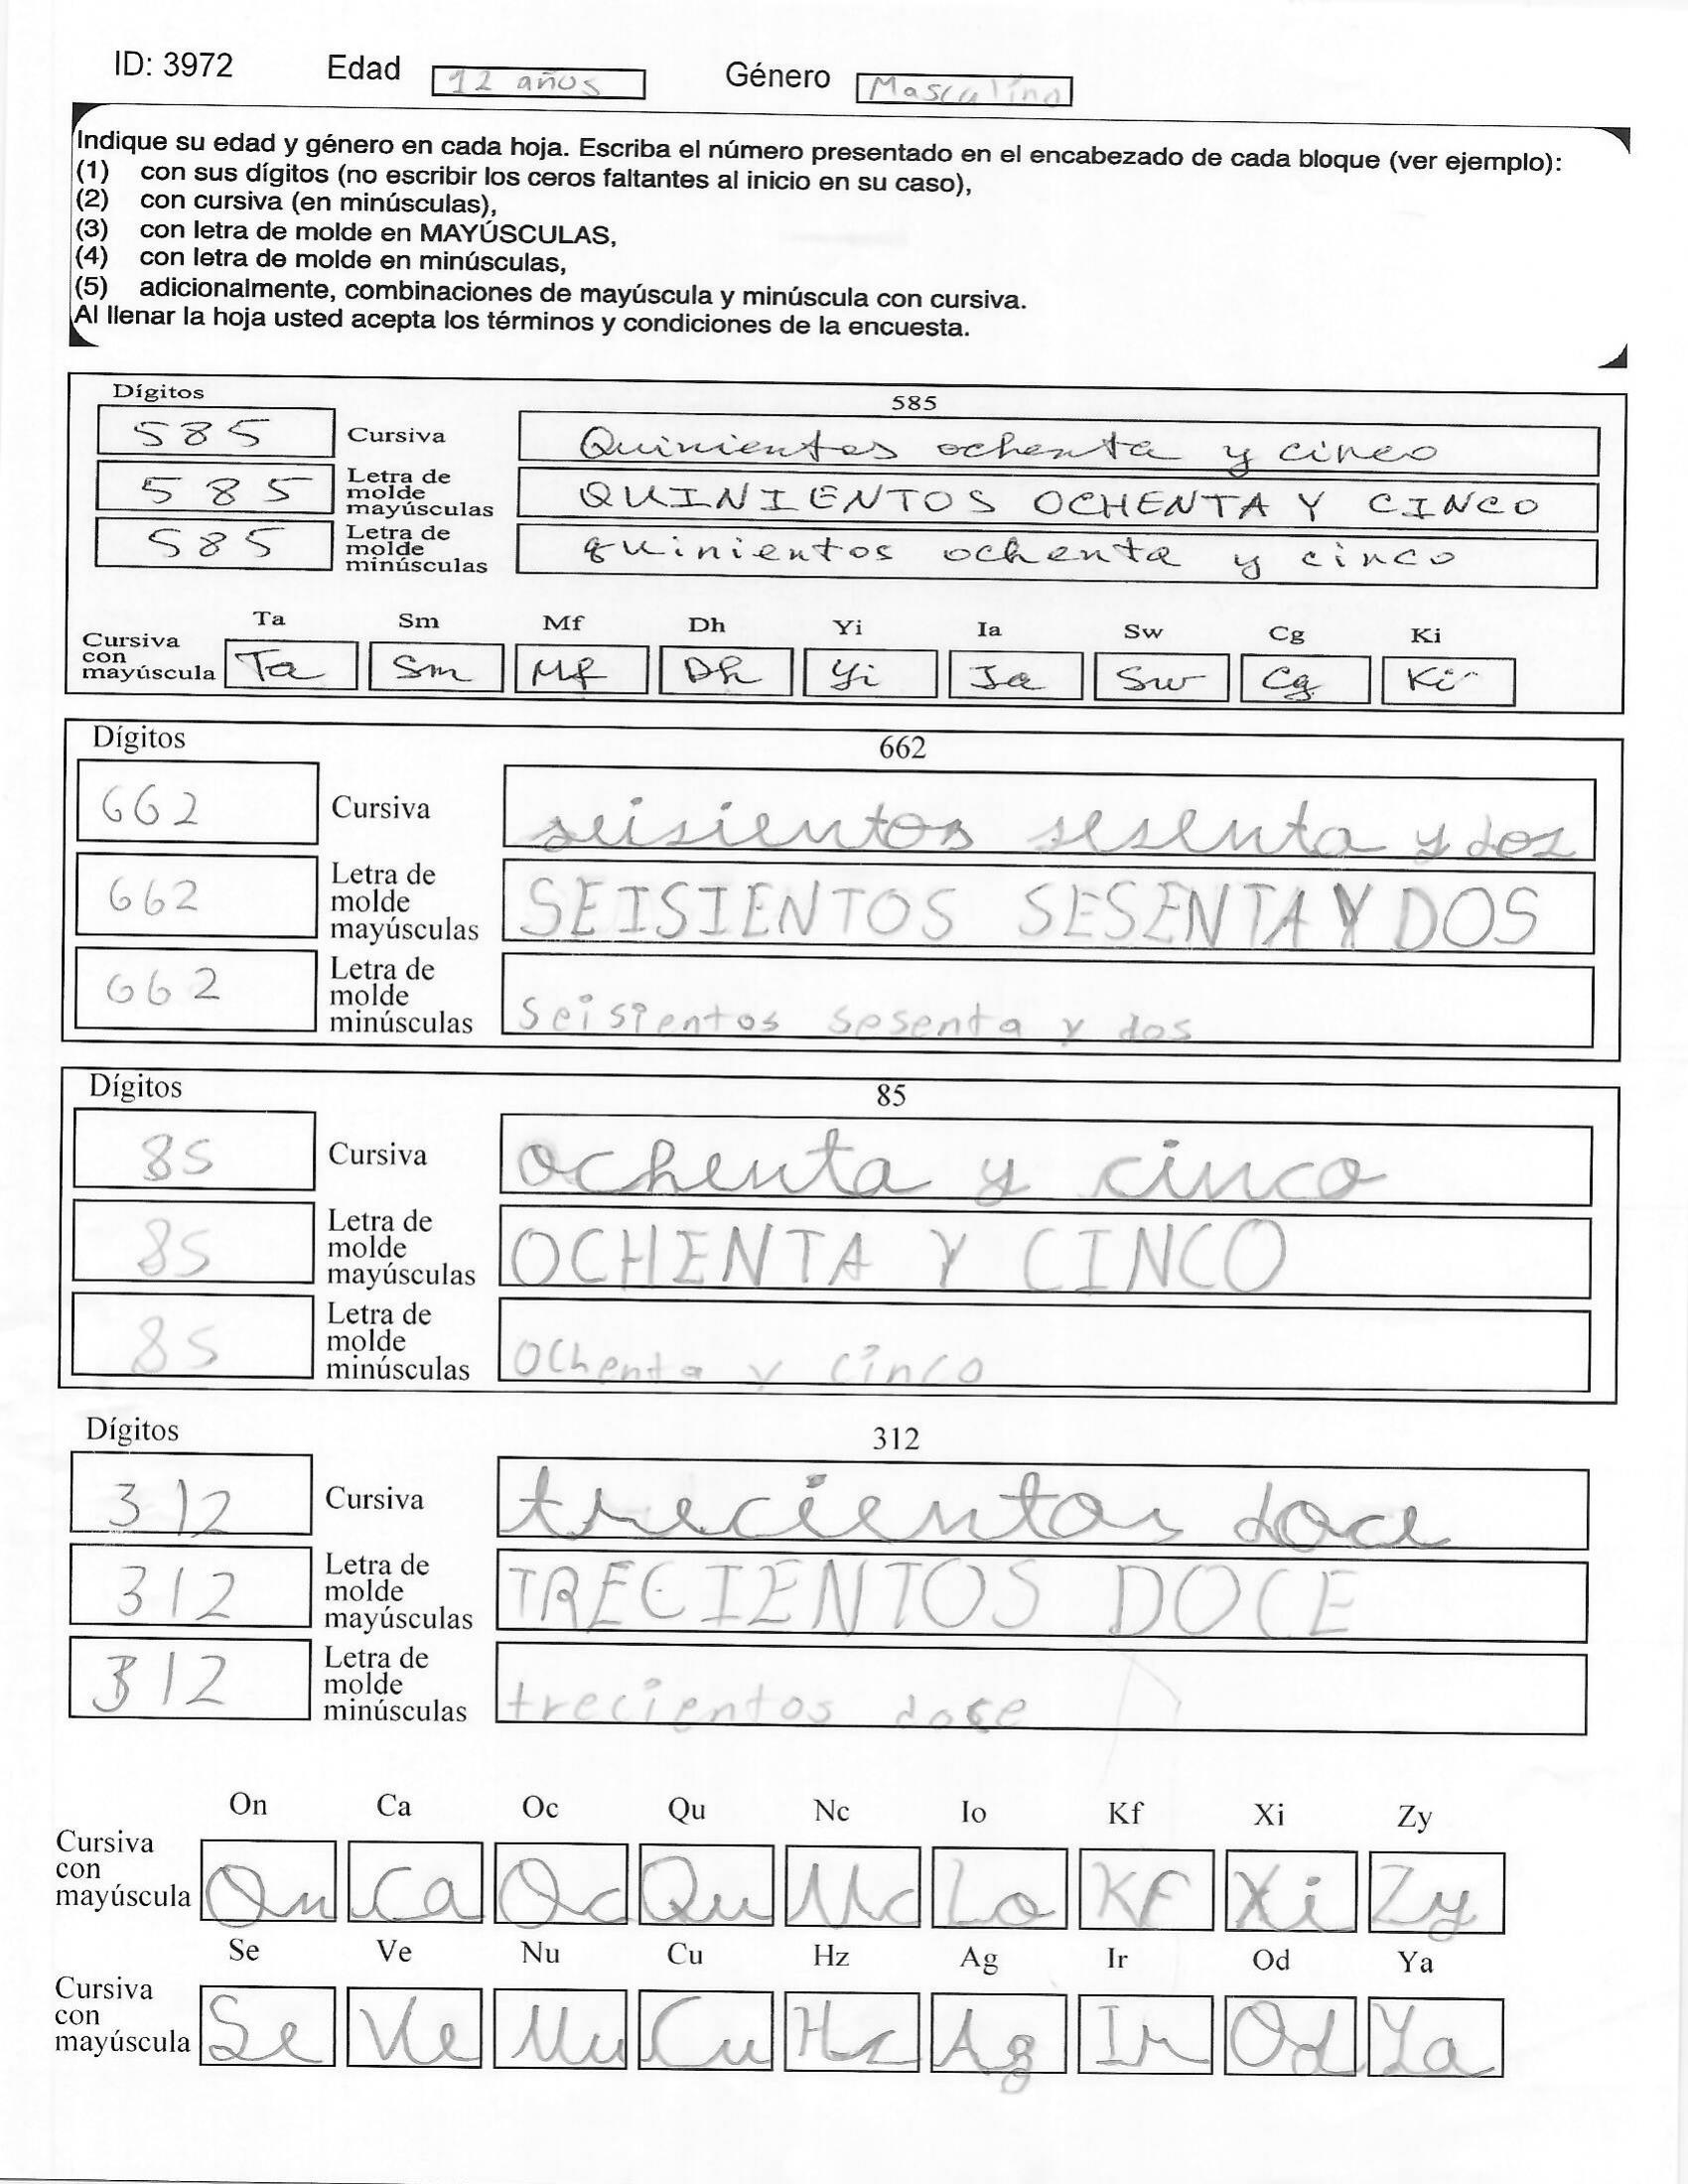 ID: 3972 Edad 12 años Género Masculino
Indique su edad y género en cada hoja. Escriba el número presentado en el encabezado de cada bloque (ver ejemplo):
(1) con sus dígitos (no escribir los ceros faltantes al inicio en su caso),
(2) con cursiva (en minúsculas),
(3) con letra de molde en MAYÚSCULAS,
(4) con letra de molde en minúsculas,
(5) adicionalmente, combinaciones de mayúscula y minúscula con cursiva.
Al llenar la hoja usted acepta los términos y condiciones de la encuesta.
Dígitos 585
585 Cursiva Quinientos ochenta y cinco
585 Letra de molde mayúsculas QUINIENTOS OCHENTA Y CINCO
585 Letra de molde minúsculas quinientos ochenta y cinco
Ta Sm Mf Dh Yi Ia Sw Cg Ki
Cursiva con mayúscula Ta Sm Mf Dh Yi Ia Sw Cg Ki
Dígitos 662
662 Cursiva seisientos sesenta y dos
662 Letra de molde mayúsculas SEISIENTOS SESENTA Y DOS
662 Letra de molde minúsculas seisientos sesenta y dos
Dígitos 85
85 Cursiva ochenta y cinco
85 Letra de molde mayúsculas OCHENTA Y CINCO
85 Letra de molde minúsculas ochenta y cinco
Dígitos 312
312 Cursiva trecientos doce
312 Letra de molde mayúsculas TRECIENTOS DOCE
312 Letra de molde minúsculas trecientos doce
On Ca Oc Qu Nc Io Kf Xi Zy
Cursiva con mayúscula On Ca Oc Qu Nc Lo Kf Xi Zy
Se Ve Nu Cu Hz Ag Ir Od Ya
Cursiva con mayúscula Se Ve Nu Cu Hz Ag Ir Od Ya